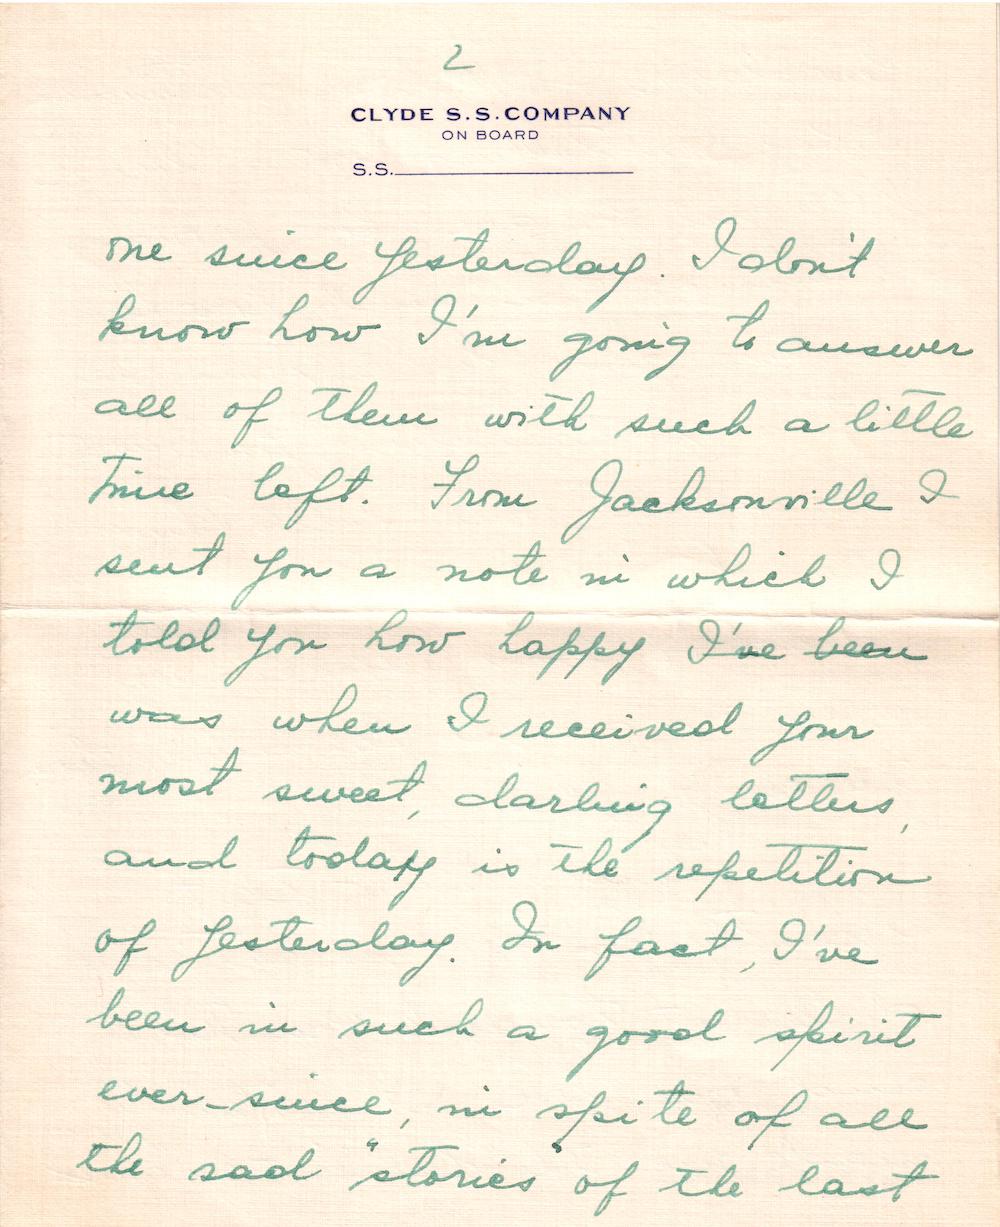 2
CLYDE S.S. COMPANY
ON BOARD
S.S.
one since yesterday. I don't
know how I'm going to answer
all of them with such a little
time left. From Jacksonville I
sent you a note in which I
told you how happy I've been
was when I received your
most sweet, darling letters,
and today is the repetition
of yesterday. In fact, I've
been in such a good spirit
ever-since, in spite of all
the sad "stories" of the last